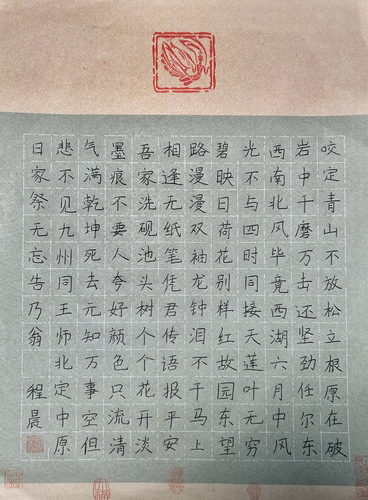 咬定青山不放松立根原在破
岩中千磨万击还坚劲任尔东
西南北风毕竟西湖六月中风
光不与四时同接天莲叶无穷
碧映日荷花别样红故园东望
路漫漫双袖龙钟泪不干马上
相逢无纸笔凭君传语报平安
吾家洗砚池头树个个花开淡
墨痕不要人夸好颜色只流清
气满乾坤死去元知万事空但
悲不见九州同王师北定中原
日家祭无忘告乃翁 程晨